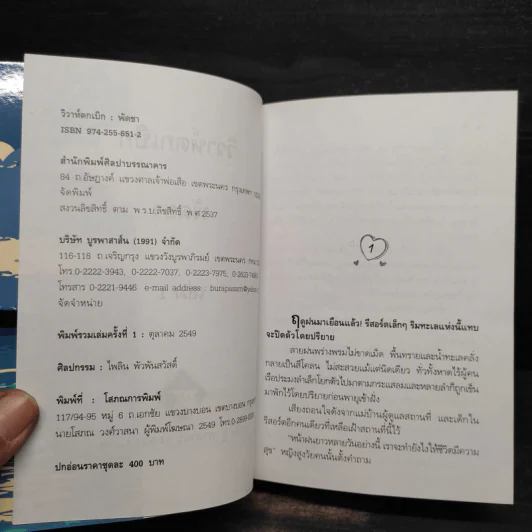 วิวาห์ตกเบิก : พัดชา
ISBN 974-255-651-2
สำนักพิมพ์ศิลปาบรรณาคาร
84 ถ.อัษฎางค์ แขวงศาลเจ้าพ่อเสือ เขตพระนคร กรุงเทพฯ
จัดพิมพ์
สงวนลิขสิทธิ์ ตาม พ.ร.บ.ลิขสิทธิ์ พ.ศ 2537
บริษัท บูรพาสาส์น (1991) จำกัด
116-118 ถ.เจริญกรุง แขวงวังบูรพาภิรมย์ เขตพระนคร
โทร.0-2222-3943, 0-2222-7037, 0-2223-7975,
โทรสาร 0-2221-9446 e-mail address :
จัดจำหน่าย
พิมพ์รวมเล่มครั้งที่ 1 : ตุลาคม 2549
ศิลปกรรม : ไพลิน พัวพันสวัสดิ์
พิมพ์ที่ : โสภณการพิมพ์
117/94-95 หมู่ 6 ถ.เอกชัย แขวงบางบอน เขตบางบอน
นายโสภณ วงศ์วาสนา ผู้พิมพ์โฆษณา 2549
ปกอ่อนราคาชุดละ 400 บาท
1
ฤดูฝนมาเยือนแล้ว! รีสอร์ตเล็กๆ ริมทะเลแห่งนี้แทบ
จะปิดตัวโดยปริยาย
สายฝนพร่างพรมไม่ขาดเม็ด พื้นทรายและน้ำทะเลคลั่ง
กลายเป็นสีโคลน ไม่สะสวยแม้แต่นิดเดียว ทั่วทั้งหาดไร้ผู้คน
เรือประมงลำเล็กโยกตัวไปมาตามกระแสลมและหลายลำก็ถูกเข็น
มาพักไว้โดยปริยายก่อนพายุเข้าฝั่ง
เสียงถอนใจดังจากแม่บ้านผู้ดูแลสถานที่ และเด็กใน
รีสอร์ตอีกคนเดียวที่เหลือเฝ้าสถานที่นี้ไว้
"หน้าฝนยาวหลายวันอย่างนี้ เราจะทำยังไงให้ชีวิตมีความ
สุข" หญิงสูงวัยคนนั้นตั้งคำถาม